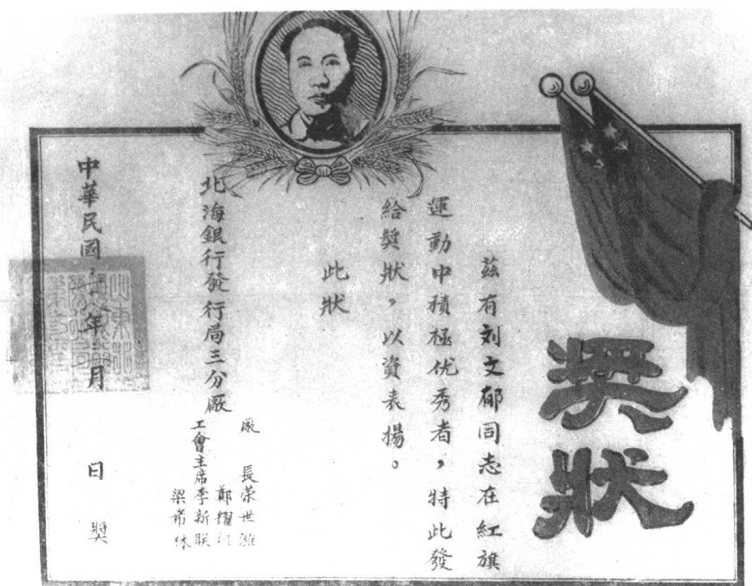 獎狀
茲有刘文郁同志在紅旗
運動中積極优秀者，特此發
給獎狀，以資表揚。
此狀
北海銀行發行局三分廠
廠長荣世
鄭耀
工會主席李新朕
梁希
中華民國年月日獎